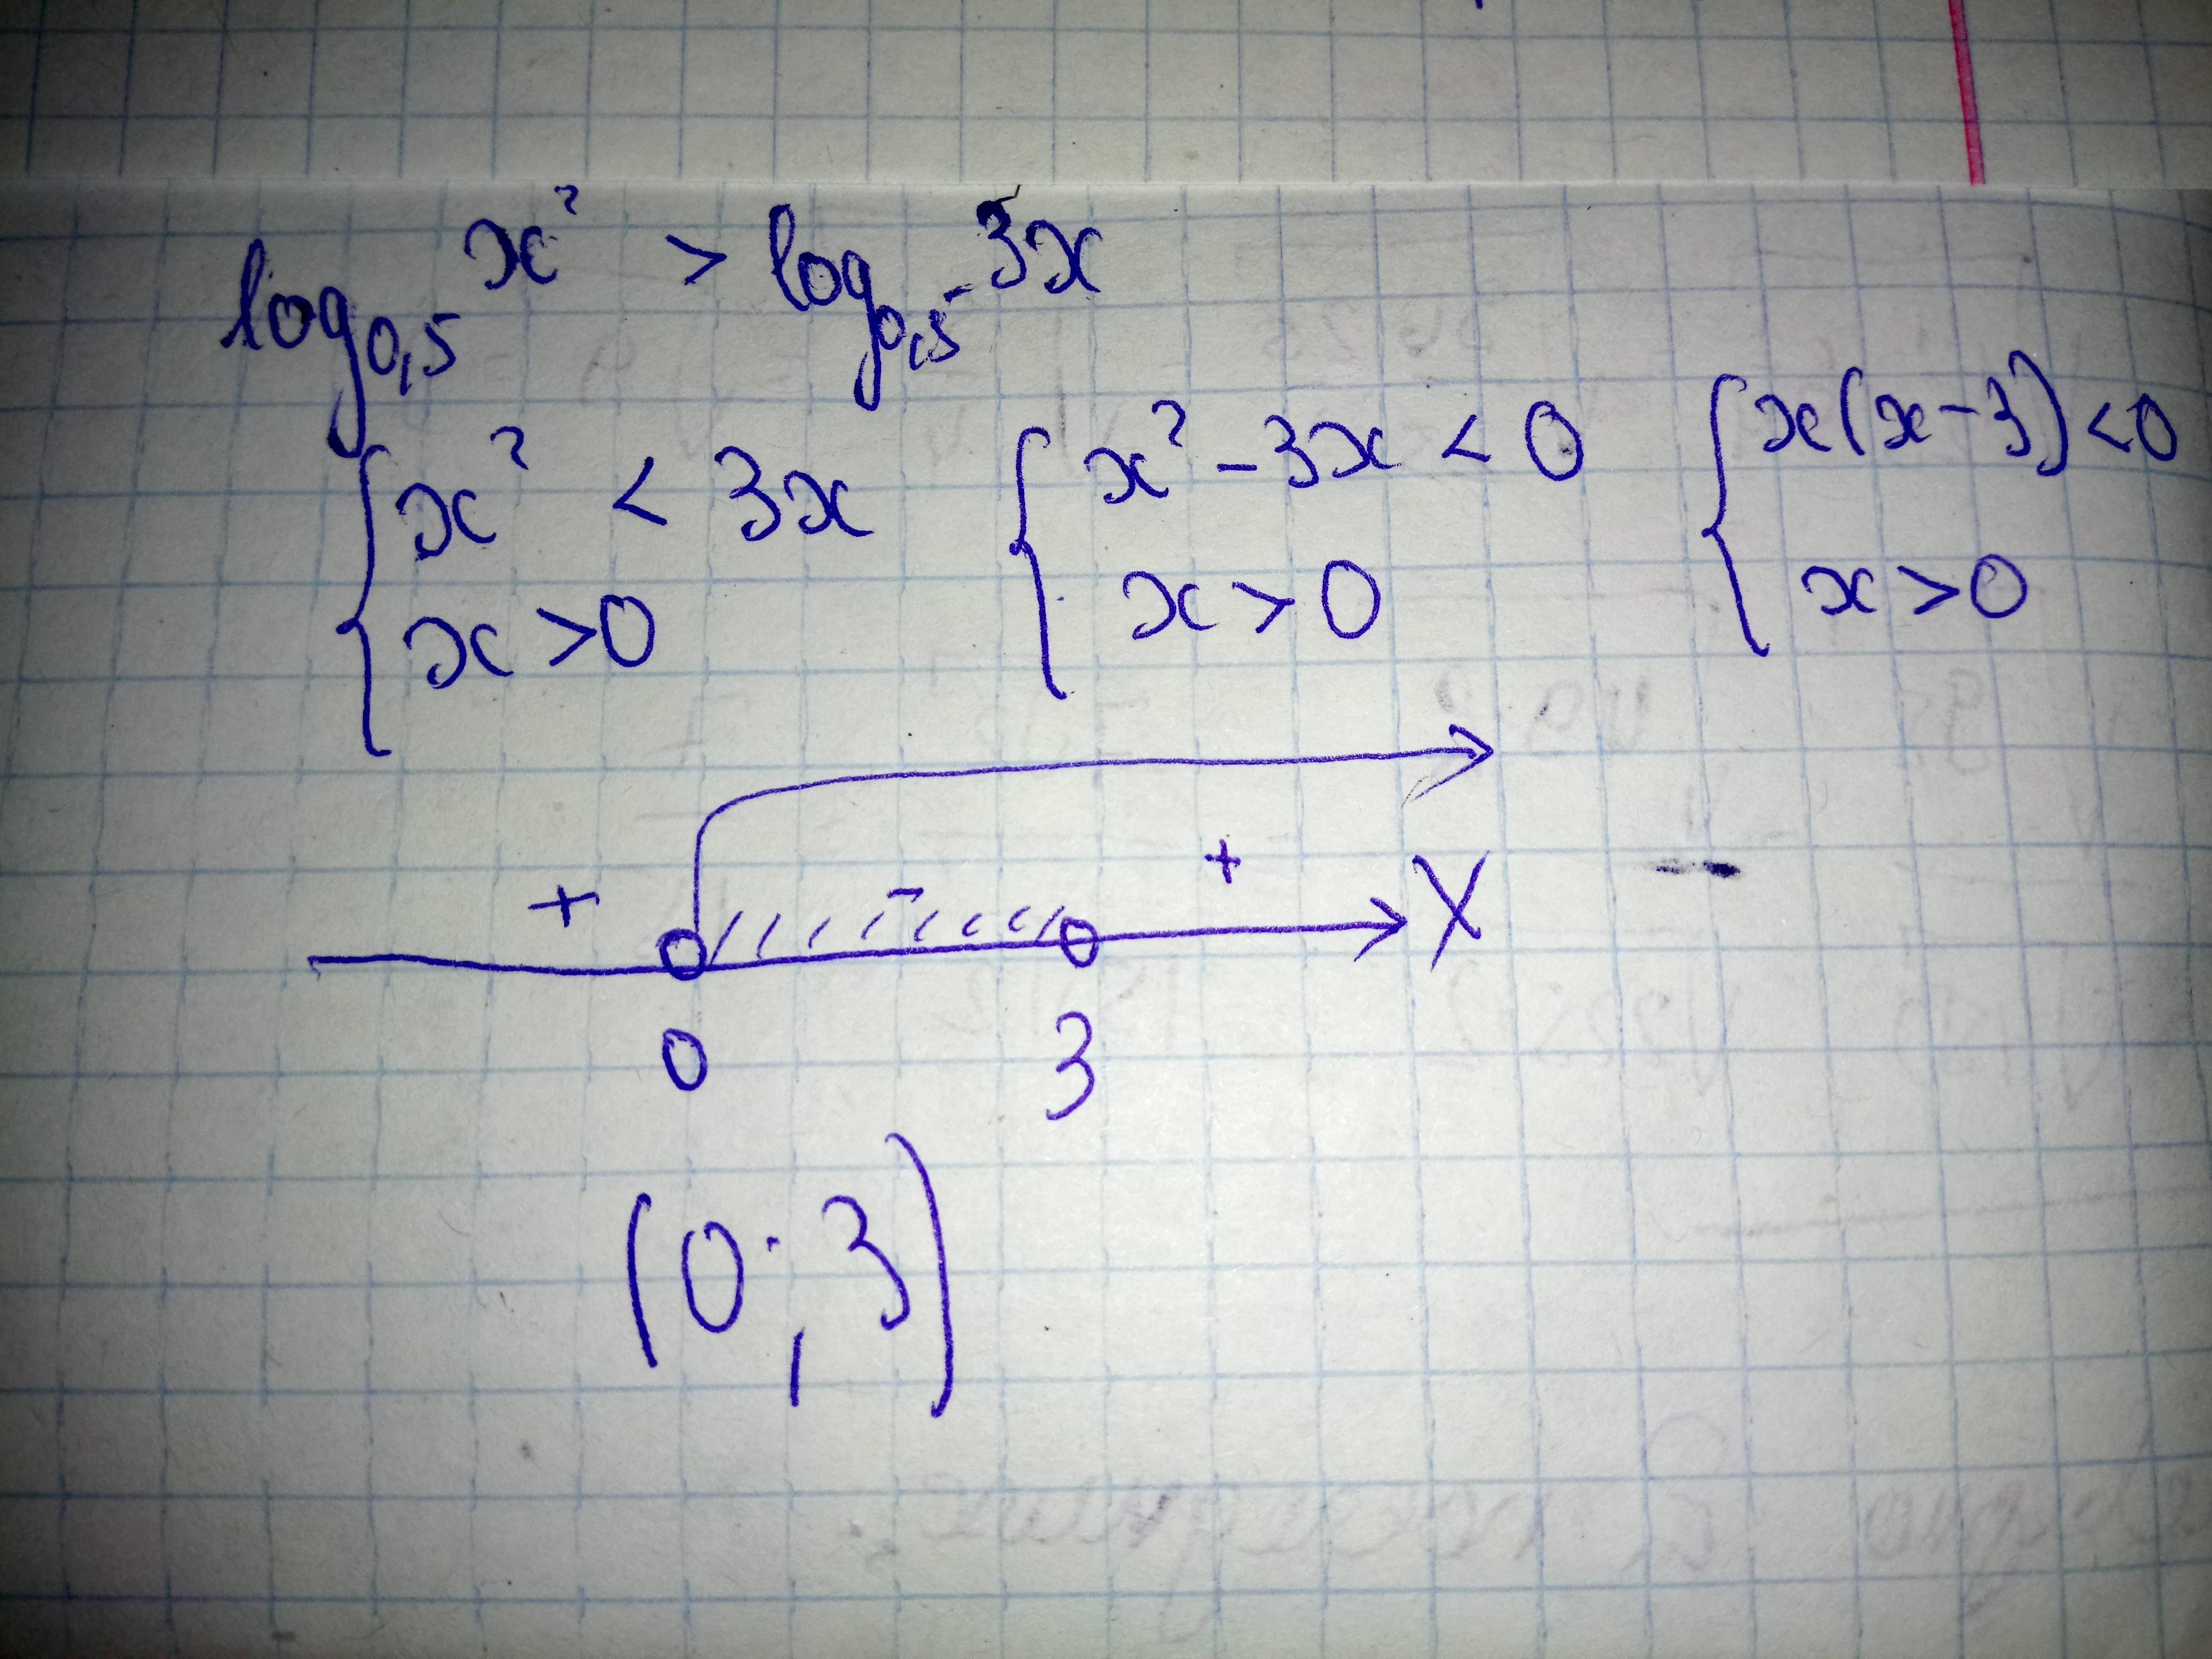 log₀,₅ x² > log₀,₅ 3x
{x² < 3x {x² - 3x < 0 {x(x-3)<0
x>0 x>0 x>0
+ - + X
0 3
(0; 3)